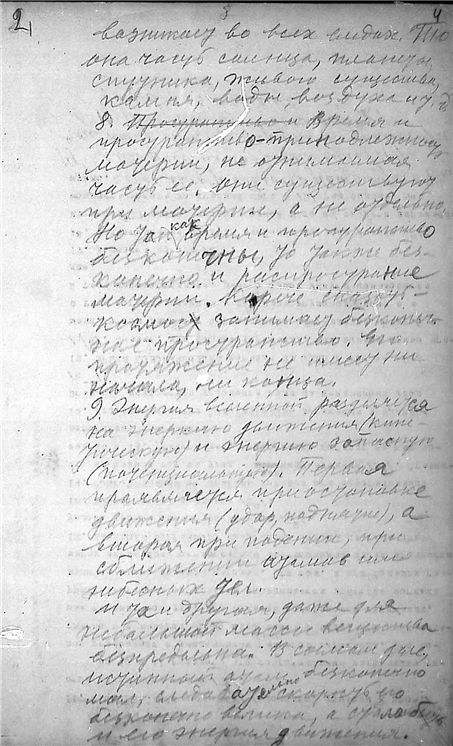 2 3 4
возникает во всех видах. То
она часть солнца, планеты,
спутника, живого существа,
камня, воды, воздуха и т. д.
8. Пространство и Время и
пространство – принадлежность
материи, не отнимаемая
часть ее. Они существуют
при материи, а не отдельно.
Но так как время и пространство
безконечны, то также без-
конечно и распространение
материи. Короче сказать –
космос занимает безконеч-
ное пространство. Его
протяжение не имеет ни
начала, ни конца.
9. Энергия вселенной разделяется
на энергию движения (кине-
тическую) и энергию запасную
(потенциальную). Первая
проявляется при остановке
движения (удар, ), а
вторая при падении, при
сближении атомов или
небесных тел.
И та и другая, даже для
небольшой массы вещества
безпредельна. В самом деле,
истинный атом безконечно
мал, следовательно скорость его
безконечно велика, а стало быть
и его энергия движения.